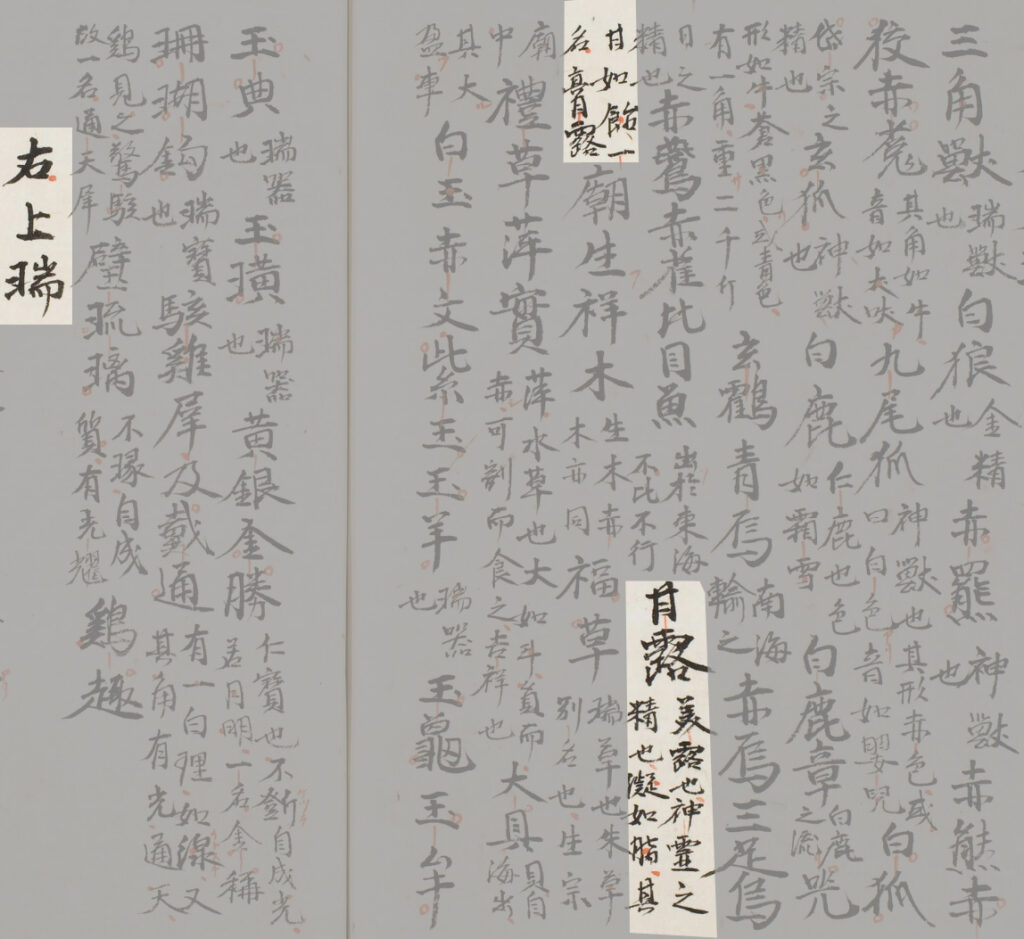 三角獸瑞獸也白狼金精也赤羆神獸也赤熊赤
狡赤菟其角如牛音如犬吠九尾狐神獸也其形赤色或曰白色音如嬰児白狐
岱宗之精也玄狐神獸也白鹿仁鹿也色如霜雪白鹿章白鹿之流兕
形如牛蒼黒色又青色有一角重二千斤玄鸖青烏南海輸之赤烏三足烏
日之精也赤鷩赤雀比目魚出於東海不比不行甘露美露也神靈之精也凝如脂其
甘如飴一名膏露廟生祥木生木赤木亦同福草瑞草也朱草別名也生宗
廟中禮草萍實萍水草也大如斗員而赤可割而食之吉祥也大貝貝自海出
其大盈車白玉赤文紫玉玉羊瑞器也玉龜玉牛
玉典瑞器也玉璜瑞器也黄銀金勝仁寶也不斵自成光若月明一名金稱
珊瑚鉤瑞寶也駭雞犀及戴通有一白理如線又其角有光通天
鷄見之驚駭故一名通天犀璧琉璃不琢自成質有光耀鷄趣
右上瑞